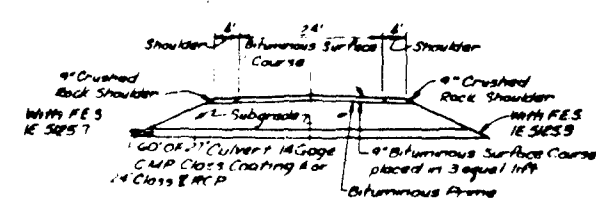 4' 24' 4'
Shoulder Bituminous Surface Shoulder
Course
9" Crushed
Rock Shoulder
9" Crushed
Rock Shoulder
With F.E.S.
Subgrade
With F.E.S.
60' OF 27" Culvert 14 Gage
CMP Class Coating A or
24" Class RCP
9" Bituminous Surface Course
placed in 3 equal lift
Bituminous Prime